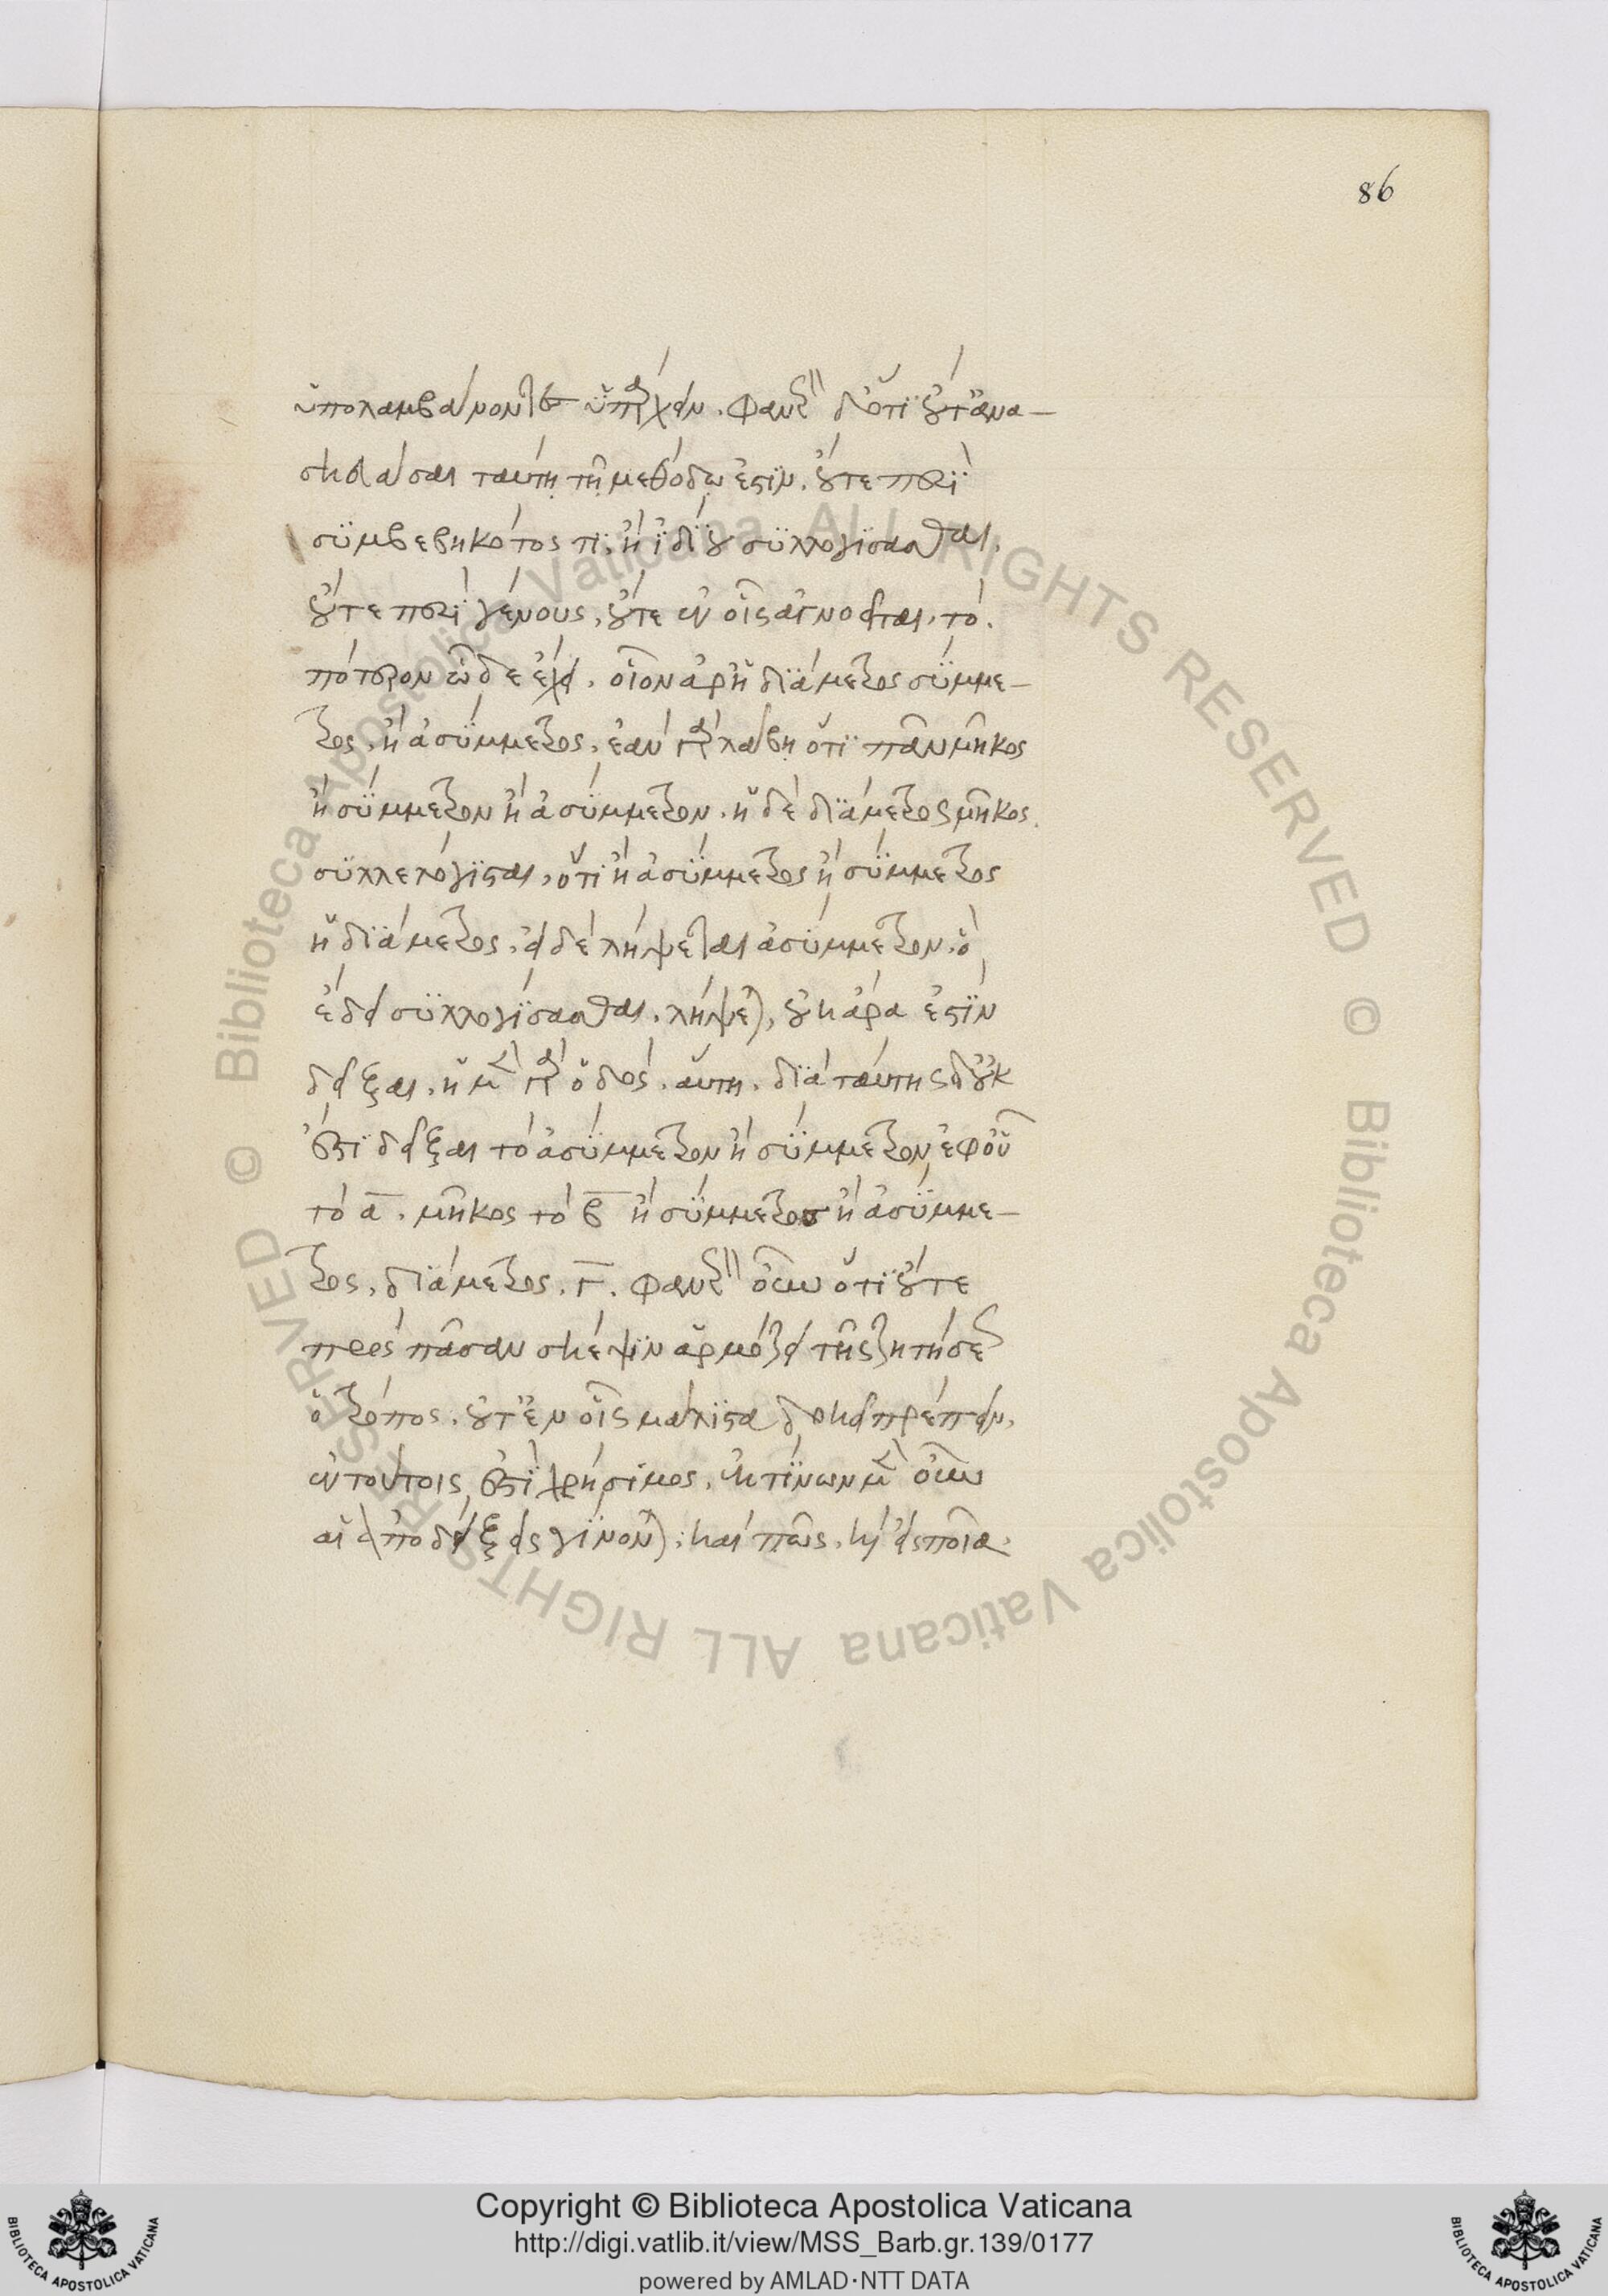 86
ὑπολαμβάνοντες ὑπάρχειν. φανερὸν δ' ὅτι οὔτ' ἀνα-
σκευάσαι ταύτη τῆ μεθόδω ἐστὶν. οὔτε περὶ
συμβεβηκότος τι. ἢ ἰδίου συλλογίσασθαι.
οὔτε περὶ γένους, οὔτε ἐν οἷς ἀγνοεῖται. τὸ.
πότερον ὧδε ἔχει. οἷον ἆρ' ἡ διάμετρος σύμμε-
τρος. ἢ ἀσύμμετρος. ἐὰν γὰρ λάβη ὅτι πᾶν μῆκος
ἢ σύμμετρον ἢ ἀσύμμετρον. ἡ δὲ διάμετρος μῆκος.
συλλελόγισται, ὅτι ἢ ἀσύμμετρος ἢ σύμμετρος
ἡ διάμετρος. εἰ δὲ λήψεται ἀσύμμετρον. ὃ
ἔδει συλλογίσασθαι. λήψεται, οὐκ ἄρα ἐστὶν
δεῖξαι. ἡ μὲν γὰρ ὁδὸς. αὕτη. διὰ ταύτης δ' οὐκ
ἔστι δεῖξαι τὸ ἀσύμμετρον ἢ σύμμετρον, ἐφ' οὗ
τὸ α. μῆκος τὸ β ἢ σύμμετρος ἢ ἀσύμμε-
τρος, διάμετρος. γ. φανερὸν οὖν ὅτι οὔτε
πρὸς πᾶσαν σκέψιν ἁρμόζει τῆς ζητήσεως
ὁ τρόπος. οὔτ' ἐν οἷς μάλιστα δοκεῖ πρέπειν,
ἐν τούτοις ἐστὶ χρήσιμος. ἐκ τίνων μὲν οὖν
αἱ ἀποδείξεις γίνονται. καὶ πῶς. καὶ εἰς ποῖα.
Copyright © Biblioteca Apostolica Vaticana
http://digi.vatlib.it/view/MSS_Barb.gr.139/0177
powered by AMLAD·NTT DATA
BIBLIOTECA APOSTOLICA VATICANA
BIBLIOTECA APOSTOLICA VATICANA
© Biblioteca Apostolica Vaticana ALL RIGHTS RESERVED © Biblioteca Apostolica Vaticana ALL RIGHTS RESERVED